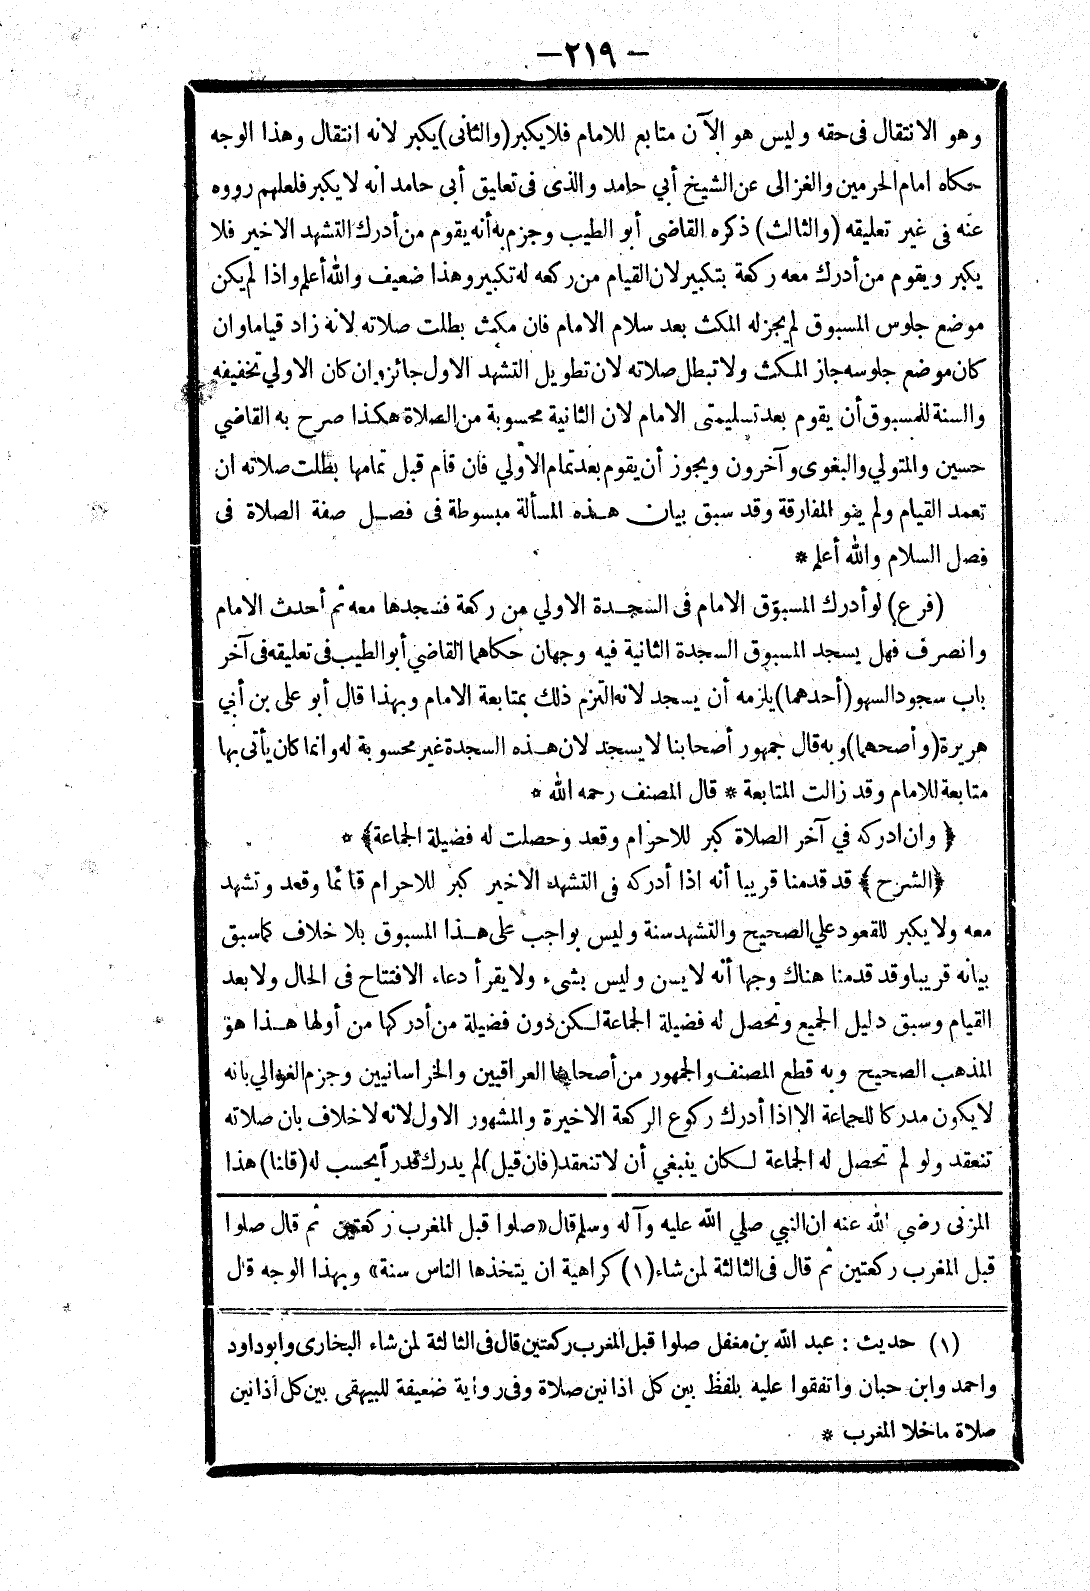 — ٢١٩ —
وهو الانتقال فى حقه وليس هو الآن متابع للامام فلا يكبر (والثانى) يكبر لانه انتقال وهذا الوجه
حكاه امام الحرمين والغزالى عن الشيخ أبي حامد والذى فى تعليق أبى حامد انه لا يكبر فلعلهم رووه
عنه فى غير تعليقه (والثالث) ذكره القاضى أبو الطيب وجزم به أنه يقوم من أدرك التشهد الاخير فلا
يكبر ويقوم من أدرك معه ركعة بتكبير لان القيام من ركعه له تكبير وهذا ضعيف والله أعلم واذا لم يكن
موضع جلوس المسبوق لم يجز له المكث بعد سلام الامام فان مكث بطلت صلاته لانه زاد قياما وان
كان موضع جلوسه جاز المكث ولا تبطل صلاته لان تطويل التشهد الاول جائز وان كان الاولي تخفيفه
والسنة للمسبوق أن يقوم بعد تسليمتى الامام لان الثانية محسوبة من الصلاة هكذا صرح به القاضي
حسين والمتولي والبغوى وآخرون ويجوز أن يقوم بعد تمام الاولي فان قام قبل تمامها بطلت صلاته ان
تعمد القيام ولم ينو المفارقة وقد سبق بيان هذه المسألة مبسوطة فى فصل صفة الصلاة فى
فصل السلام والله أعلم *
(فرع) لو أدرك المسبوق الامام فى السجدة الاولي من ركعة فسجدها معه ثم أحدث الامام
وانصرف فهل يسجد المسبوق السجدة الثانية فيه وجهان حكاهما القاضي أبو الطيب فى تعليقه فى آخر
باب سجود السهو (أحدهما) يلزمه أن يسجد لانه التزم ذلك بمتابعة الامام وبهذا قال أبو على بن أبي
هريرة (وأصحهما) وبه قال جمهور أصحابنا لا يسجد لان هذه السجدة غير محسوبة له وانما كان يأتى بها
متابعة للامام وقد زالت المتابعة * قال المصنف رحمه الله *
﴿ وان ادركه في آخر الصلاة كبر للاحرام وقعد وحصلت له فضيلة الجماعة ﴾ *
﴿ الشرح ﴾ قد قدمنا قريبا أنه اذا أدركه فى التشهد الاخير كبر للاحرام قائما وقعد وتشهد
معه ولا يكبر للقعود علي الصحيح والتشهد سنة وليس بواجب على هذا المسبوق بلا خلاف كما سبق
بيانه قريبا وقد قدمنا هناك وجها أنه لا يسن وليس بشىء ولا يقرأ دعاء الافتتاح فى الحال ولا بعد
القيام وسبق دليل الجميع وتحصل له فضيلة الجماعة لكن دون فضيلة من أدركها من أولها هذا هو
المذهب الصحيح وبه قطع المصنف والجمهور من أصحابنا العراقيين والخراسانيين وجزم الغزالي بانه
لا يكون مدركا للجماعة الا اذا أدرك ركوع الركعة الاخيرة والمشهور الاول لانه لا خلاف بان صلاته
تنعقد ولو لم تحصل له الجماعة لكان ينبغي أن لا تنعقد (فان قيل) لم يدرك قدرا يحسب له (قلنا) هذا
المزنى رضي الله عنه ان النبي صلي الله عليه وآله وسلم قال «صلوا قبل المغرب ركعتين ثم قال صلوا
قبل المغرب ركعتين ثم قال فى الثالثة لمن شاء (١) كراهية ان يتخذها الناس سنة» وبهذا الوجه قال
(١) حديث : عبد الله بن مغفل صلوا قبل المغرب ركعتين قال فى الثالثة لمن شاء البخارى وابو داود
واحمد وابن حبان واتفقوا عليه بلفظ بين كل اذانين صلاة وفى رواية ضعيفة للبيهقى بين كل أذانين
صلاة ما خلا المغرب *